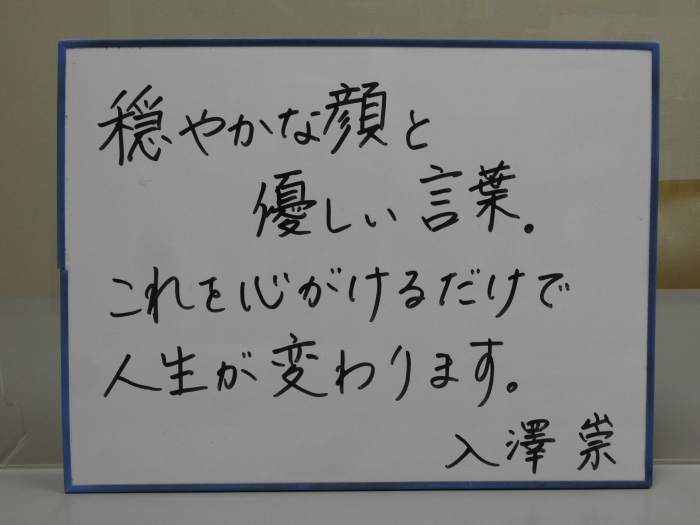 穏やかな顔と
優しい言葉。
これを心がけるだけで
人生が変わります。
入澤 崇